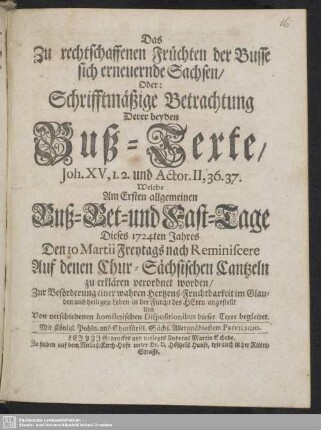 16
Das
Zu rechtschaffenen Früchten der Busse
sich erneuernde Sachsen/
Oder:
Schrifftmäßige Betrachtung
Derer beyden
Buß-Texte/
Joh. XV, 1. 2. und Actor. II, 36. 37.
Welche
Am Ersten allgemeinen
Buß-Bet-und Fast-Tage
Dieses 1724ten Jahres
Den 10 Martii Freytags nach Reminiscere
Auf denen Chur-Sächsischen Cantzeln
zu erklären verordnet worden/
Zur Beförderung einer wahren Hertzens-Fruchtbarkeit im Glau-
ben und heiligen Leben in der Furcht des HErrn angestellt
Und
Von verschiedenen homiletischen Dispositionibus dieser Texte begleitet.
Mit Königl. Pohln. und Churfürstl. Sächs. Allergnädigstem PRIVILEGIO.
LEIPZIG/ gedruckts und verlegts Andreas Martin Schede.
Zu finden auf dem Nicolai-Kirch-Hofe unter Hr. D. Hause, wie auch in der Ritter-
Strasse.